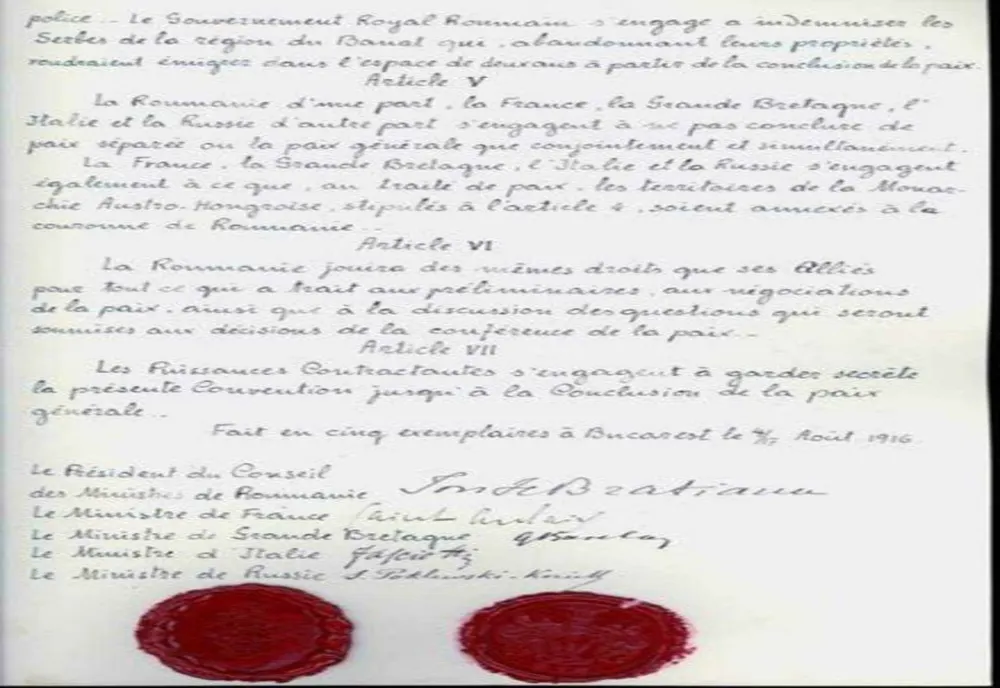 police... Le Gouvernement Royal Roumain s'engage a indemniser les
Serbes de la région du Banat qui, abandonnant leurs propriétés,
voudraient émigrer dans l'espace de deux ans à partir de la conclusion de la paix.
Article V
La Roumanie d'une part, la France, la Grande Bretagne, l'
Italie et la Russie d'autre part s'engagent à ne pas conclure de
paix séparée ou la paix générale que conjointement et simultanément.
La France, la Grande Bretagne, l'Italie et la Russie s'engagent
également à ce que, au traité de paix, les territoires de la Monar-
chie Austro-Hongroise, stipulés à l'article 4, soient annexés à la
couronne de Roumanie..
Article VI
La Roumanie jouira des mêmes droits que ses Alliés
pour tout ce qui a trait aux préliminaires, aux négociations
de la paix, ainsi que à la discussion des questions qui seront
soumises aux décisions de la conférence de la paix...
Article VII
Les Puissances Contractantes s'engagent à garder secrète
la présente Convention jusqu'à la Conclusion de la paix
générale..
Fait en cinq exemplaires à Bucarest le 4/17 Août 1916
Le Président du Conseil
des Ministres de Roumanie Bratianu
Le Ministre de France Saint Aulaire
Le Ministre de Grande Bretagne G Barclay
Le Ministre d'Italie Fasciotti
Le Ministre de Russie S. Poklewski-Koziell